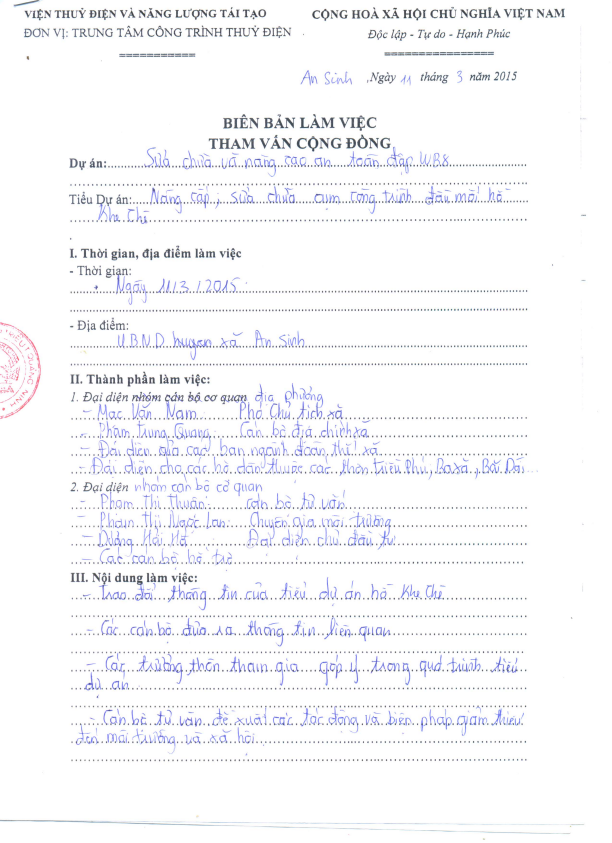 VIỆN THUỶ ĐIỆN VÀ NĂNG LƯỢNG TÁI TẠO
ĐƠN VỊ: TRUNG TÂM CÔNG TRÌNH THUỶ ĐIỆN
CỘNG HOÀ XÃ HỘI CHỦ NGHĨA VIỆT NAM
Độc lập - Tự do - Hạnh Phúc
An Sinh, Ngày 11 tháng 3 năm 2015
BIÊN BẢN LÀM VIỆC
THAM VẤN CỘNG ĐỒNG
Dự án: Sửa chữa và nâng cao an toàn đập WB8
Tiểu Dự án: Nâng cấp, sửa chữa cụm công trình đầu mối hồ
Khe Chè
I. Thời gian, địa điểm làm việc
- Thời gian:
+ Ngày 11/3/2015
- Địa điểm:
UBND huyện xã An Sinh
II. Thành phần làm việc:
1. Đại diện nhóm cán bộ cơ quan địa phương
- Mạc Văn Nam Phó Chủ tịch xã
- Phạm Trung Quang Cán bộ địa chính xã
- Đại diện của các ban ngành đoàn thể xã
- Đại diện cho các hộ dân thuộc các thôn Triều Phú, Ba Xã, Bãi Dài...
2. Đại diện nhóm cán bộ cơ quan
- Phạm Thị Thuần cán bộ tư vấn
- Phạm Thị Ngọc Lan Chuyên gia môi trường
- Dương Hải Hà Đại diện chủ đầu tư
- Các cán bộ hỗ trợ
III. Nội dung làm việc:
- Trao đổi thông tin của tiểu dự án hồ Khe Chè
- Các cán bộ đưa ra thông tin liên quan
- Các trưởng thôn tham gia góp ý trong quá trình tiểu
dự án
- Cán bộ tư vấn đề xuất các tác động và biện pháp giảm thiểu
đến môi trường và xã hội